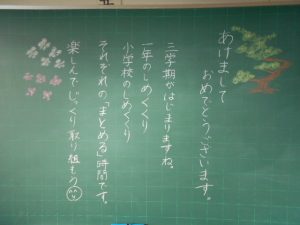 あけまして
おめでとうございます。
三学期がはじまりますね。
一年のしめくくり
小学校のしめくくり
それぞれの「まとめる」時間です。
楽しんでじっくり取り組もう